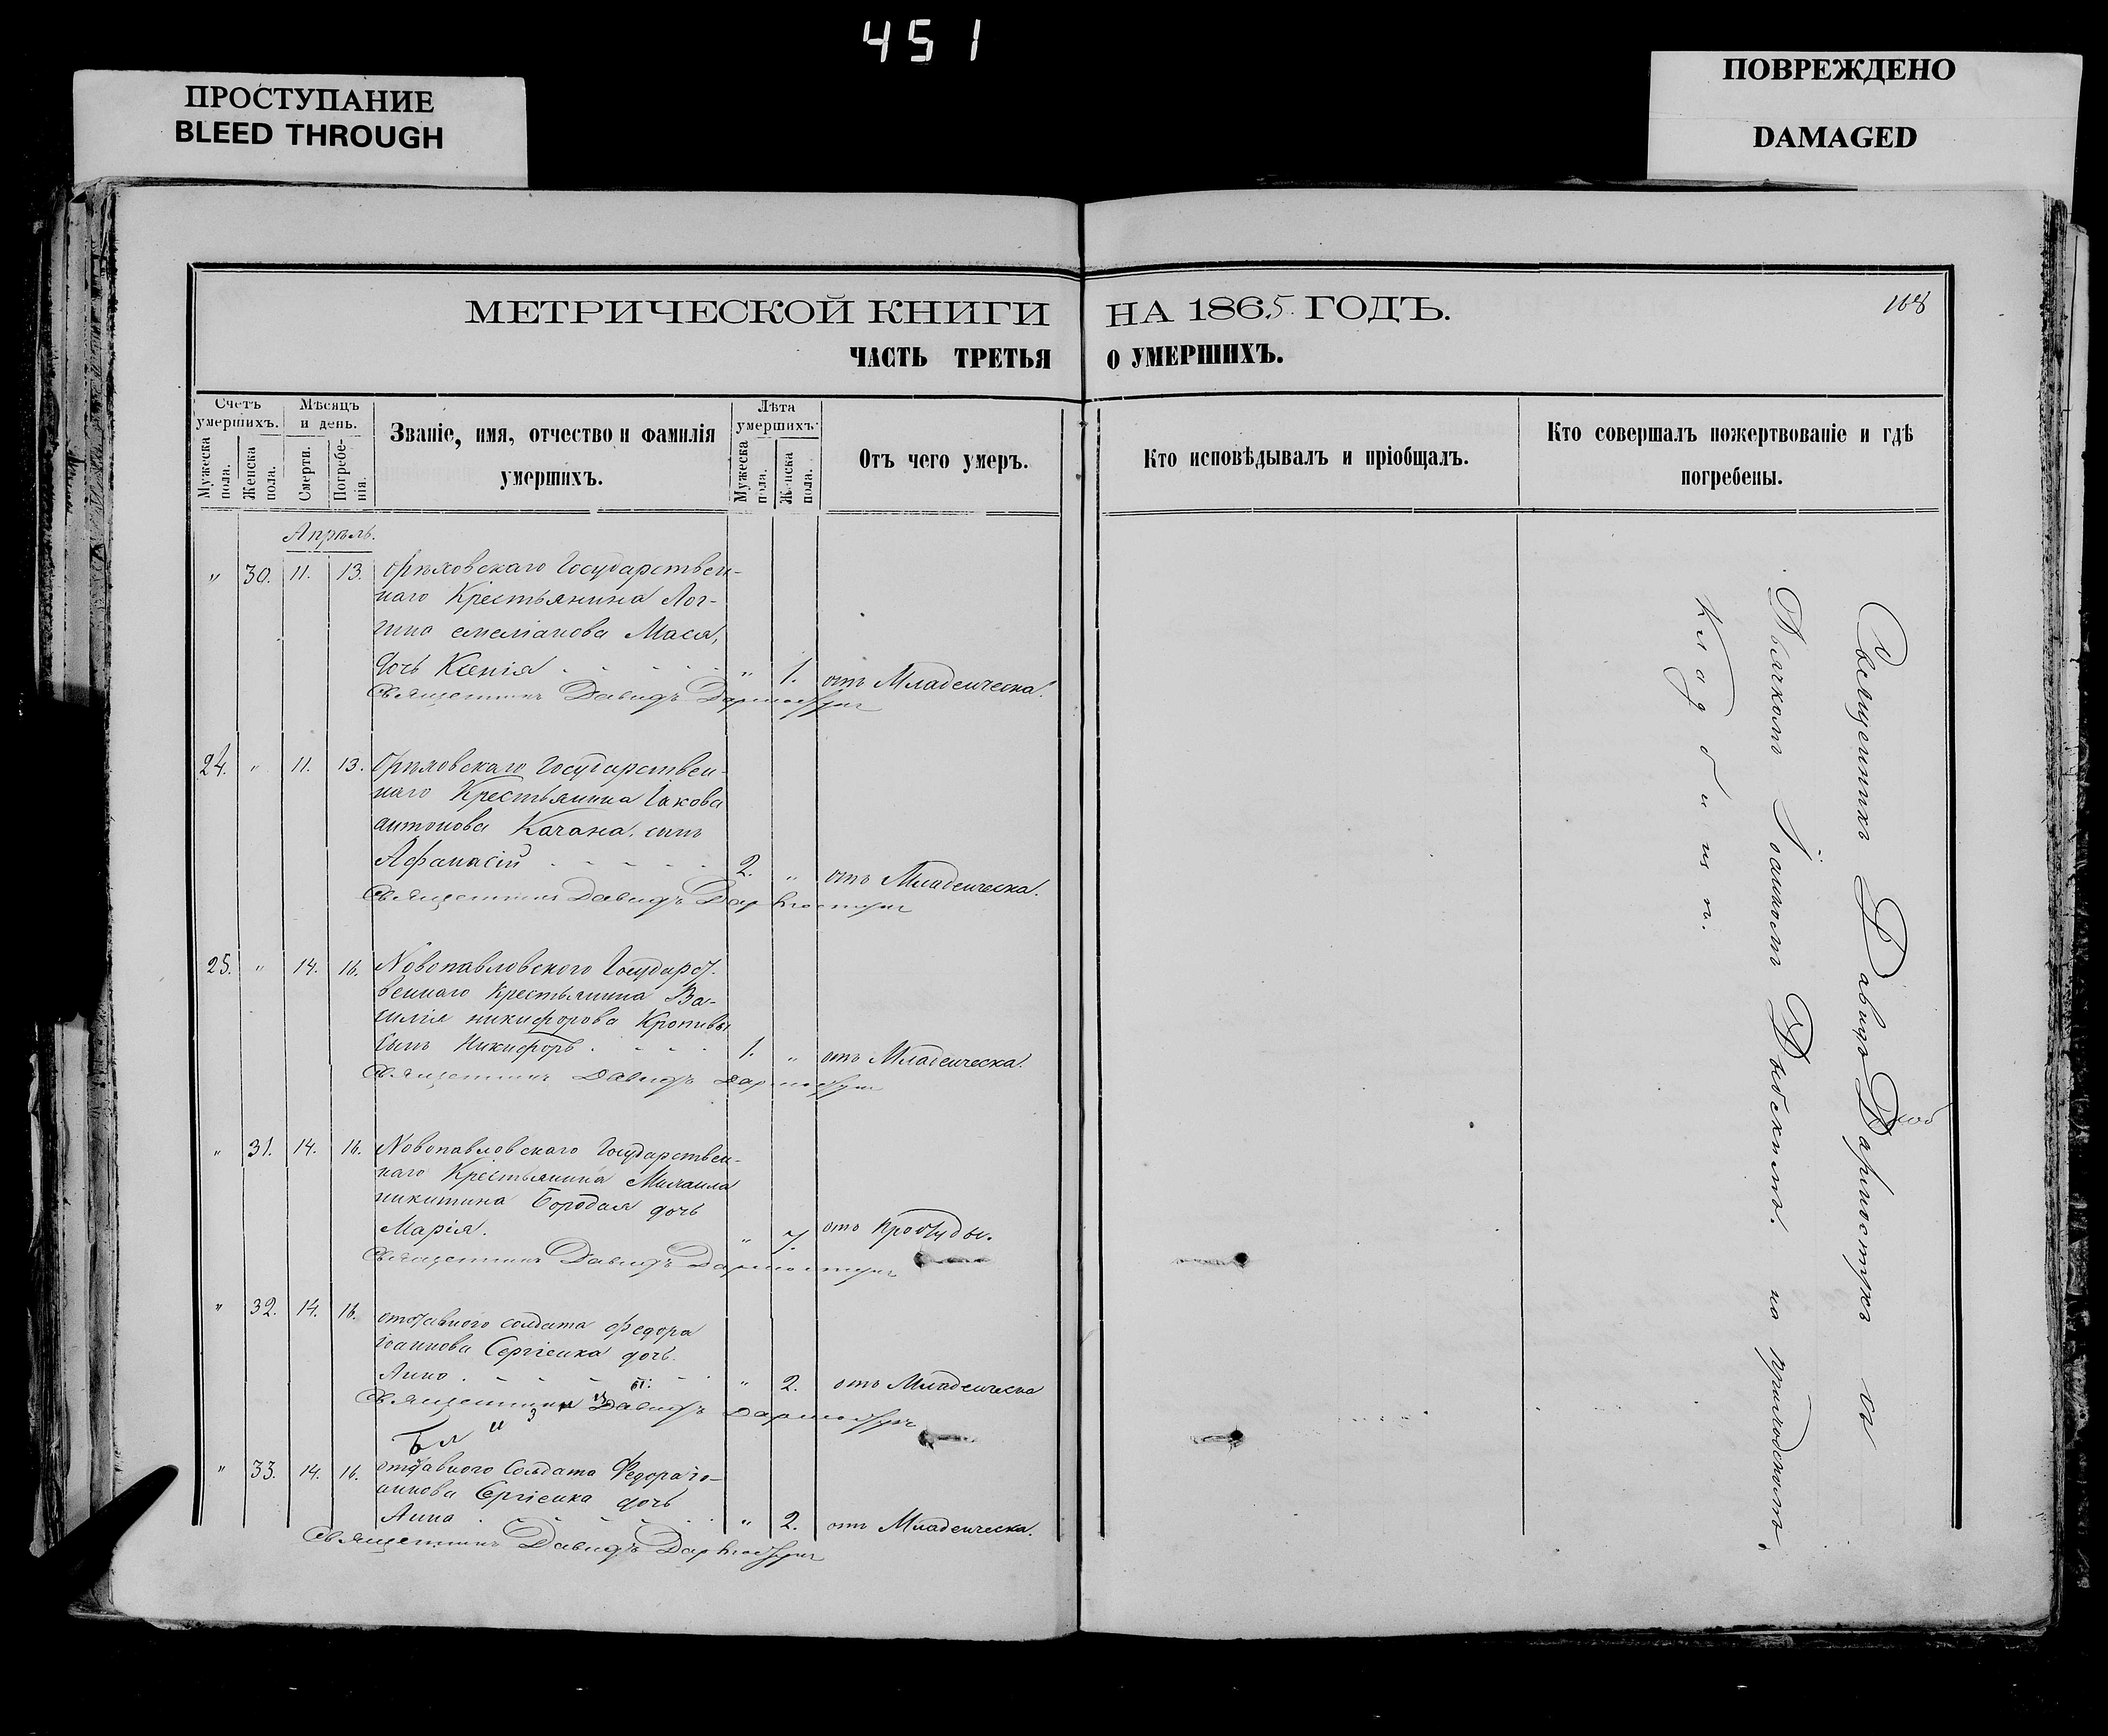 451
ПРОСТУПАНИЕ
BLEED THROUGH
ПОВРЕЖДЕНО
DAMAGED
МЕТРИЧЕСКОЙ КНИГИ НА 1865. ГОДЪ.
168
ЧАСТЬ ТРЕТЬЯ О УМЕРШИХЪ.
Счетъ умершихъ.
Мужеска пола.
Женска пола.
Мѣсяцъ и день.
Смерти.
Погребе-нія.
Званіе, имя, отчество и фамилія
умершихъ.
Лѣта умершихъ.
Мужеска пола.
Женска пола.
Отъ чего умеръ.
Кто исповѣдывалъ и пріобщалъ.
Кто совершалъ пожертвованіе и гдѣ
погребены.
Апрѣль.
" 30. 11. 13. Орѣховскаго Государствен-
наго Крестьянина Лог-
гина емеліанова Мася,
дочь Ксенія " 1. отъ Младенческа.
Священникъ Давидъ
24. " 11. 13. Орѣховскаго Государствен-
наго Крестьянина Іакова
антонова Качана. сынъ
Афанасій 2. " отъ Младенческа.
Священникъ Давидъ
25. " 14. 16. Новопавловского Государст-
веннаго Крестьянина Ва-
силія никифорова Кропивы
сынъ Никифоръ. 1. " отъ Младенческа.
Священникъ Давидъ
" 31. 14. 16. Новопавловскаго Государствен-
наго Крестьянина Михаила
никитина Бородая дочь
Марія. " 7. отъ простуды.
Священникъ Давидъ
" 32. 14. 16. отставного солдата Федора
іоаннова Сергіенка дочь.
Анна " 2. отъ Младенческа
Священникъ Давидъ
Близн:
" 33. 14. 16. отставного Солдата Федора іо-
аннова Сергіенка дочь
Анна " 2. отъ Младенческа.
Священникъ Давидъ
Священникъ Давидъ съ
Дьячкомъ Іоанномъ на приходскомъ
Кладбищѣ.